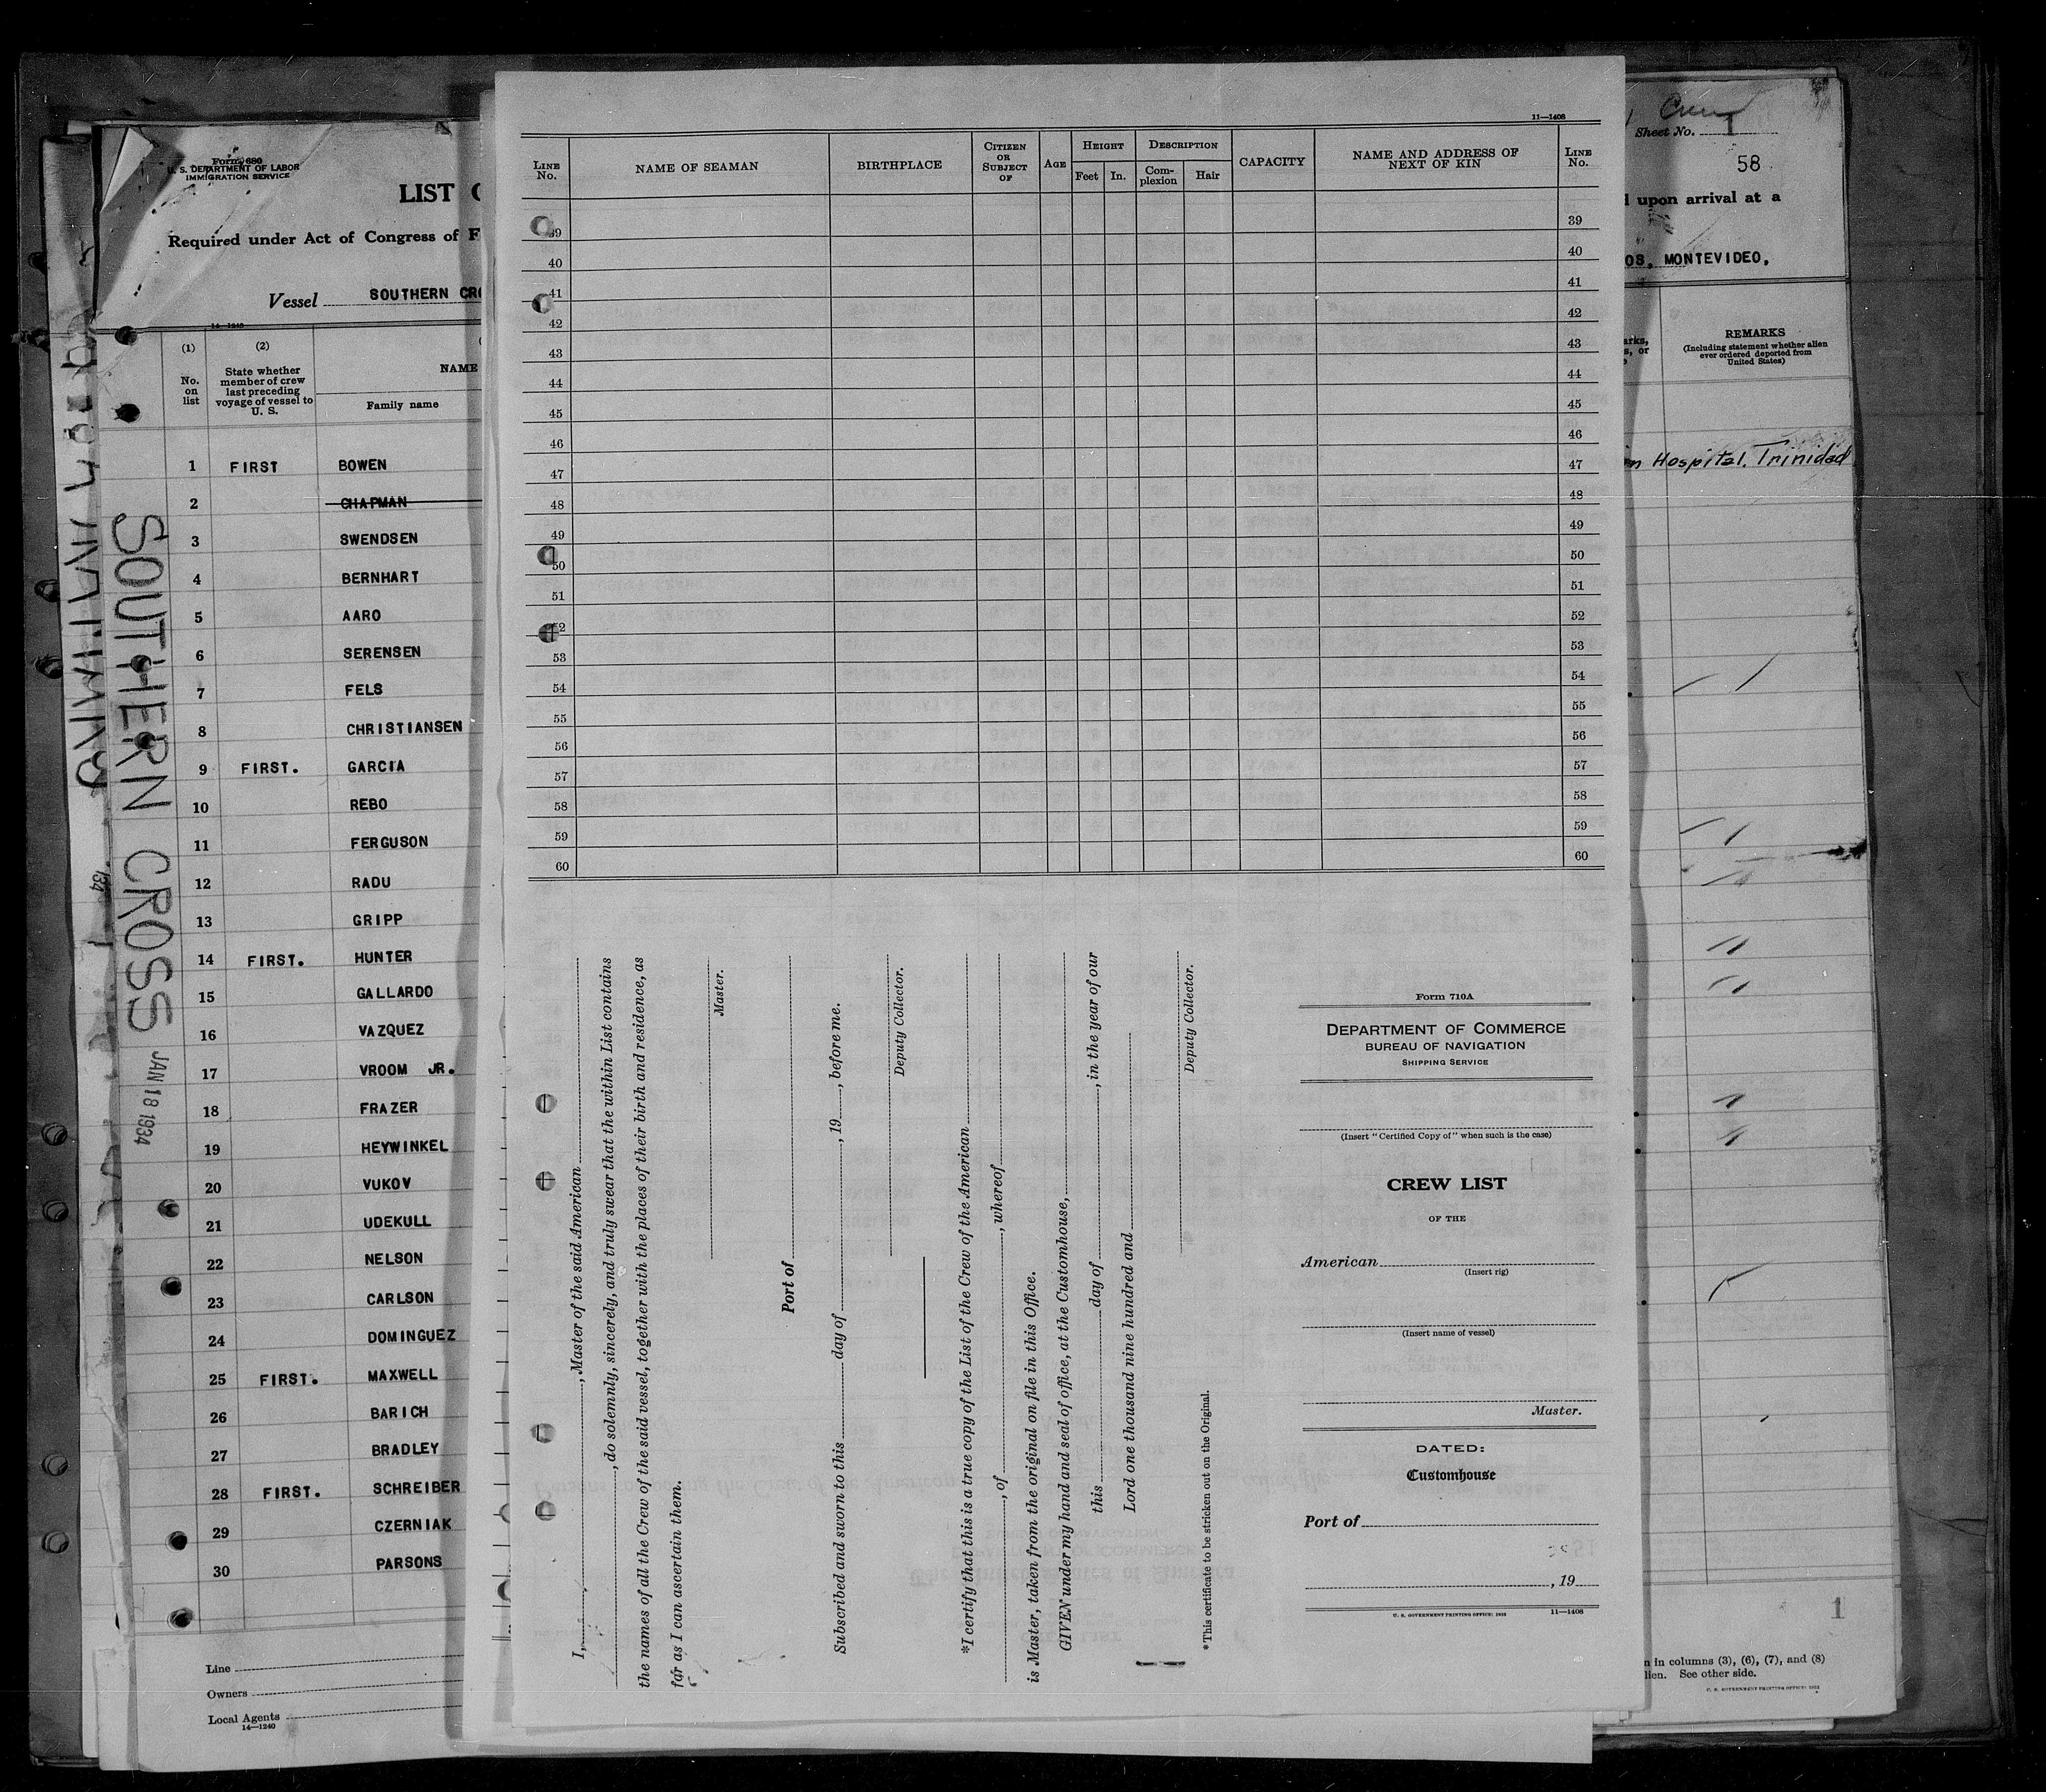 Form 680
U. S. DEPARTMENT OF LABOR
IMMIGRATION SERVICE
LIST
Required under Act of Congress of F
Vessel SOUTHERN CRO
14—1240
(1)
(2)
No. on list
State whether member of crew last preceding voyage of vessel to U. S.
NAME
Family name
1 FIRST BOWEN
2 CHAPMAN
3 SWENDSEN
4 BERNHART
5 AARO
6 SERENSEN
7 FELS
8 CHRISTIANSEN
9 FIRST. GARCIA
10 REBO
11 FERGUSON
12 RADU
13 GRIPP
14 FIRST. HUNTER
15 GALLARDO
16 VAZQUEZ
17 VROOM JR.
18 FRAZER
19 HEYWINKEL
20 VUKOV
21 UDEKULL
22 NELSON
23 CARLSON
24 DOMINGUEZ
25 FIRST. MAXWELL
26 BARICH
27 BRADLEY
28 FIRST. SCHREIBER
29 CZERNIAK
30 PARSONS
Line
Owners
Local Agents
14—1240
SOUTHERN CROSS JAN 18 1934
11—1408
LINE No.
NAME OF SEAMAN
BIRTHPLACE
CITIZEN OR SUBJECT OF
AGE
HEIGHT
Feet In.
DESCRIPTION
Complexion Hair
CAPACITY
NAME AND ADDRESS OF NEXT OF KIN
LINE No.
39 39
40 40
41 41
42 42
43 43
44 44
45 45
46 46
47 47
48 48
49 49
50 50
51 51
52 52
53 53
54 54
55 55
56 56
57 57
58 58
59 59
60 60
I, , Master of the said American
, do solemnly, sincerely, and truly swear that the within List contains
the names of all the Crew of the said vessel, together with the places of their birth and residence, as
far as I can ascertain them.
Master.
Port of
Subscribed and sworn to this day of , 19 , before me.
Deputy Collector.
*I certify that this is a true copy of the List of the Crew of the American
, of , whereof
is Master, taken from the original on file in this Office.
GIVEN under my hand and seal of office, at the Customhouse,
this day of , in the year of our
Lord one thousand nine hundred and
Deputy Collector.
*This certificate to be stricken out on the Original.
Form 710A
DEPARTMENT OF COMMERCE
BUREAU OF NAVIGATION
SHIPPING SERVICE
(Insert "Certified Copy of" when such is the case)
CREW LIST
OF THE
American
(Insert rig)
(Insert name of vessel)
Master.
DATED:
Customhouse
Port of
, 19
U. S. GOVERNMENT PRINTING OFFICE: 1932 11—1408
Crew
Sheet No. 1
58
upon arrival at a
OS, MONTEVIDEO,
REMARKS
(Including statement whether alien ever ordered deported from United States)
Hospital, Trinidad
1
n in columns (3), (6), (7), and (8)
lien. See other side.
U. S. GOVERNMENT PRINTING OFFICE: 1932